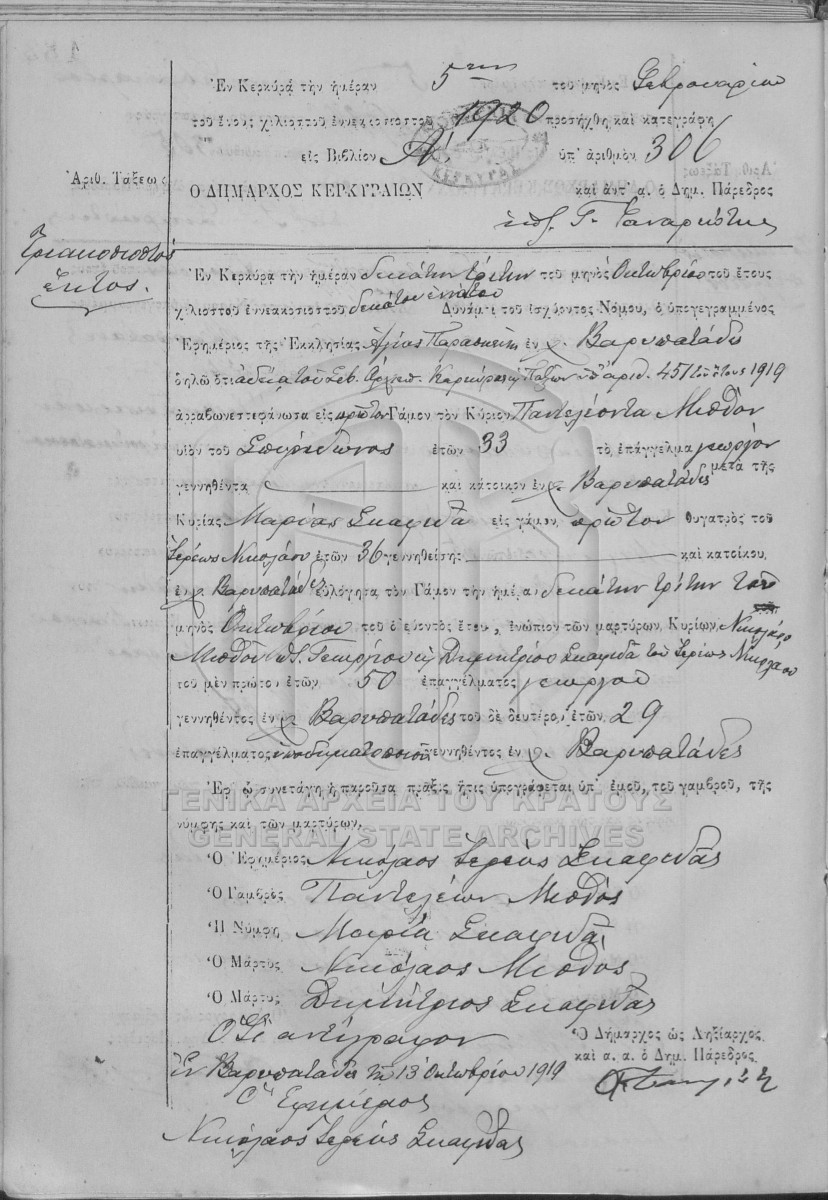 Ἐν Κερκύρᾳ τὴν ἡμέραν 5ην τοῦ μηνὸς Φεβρουαρίου
τοῦ ἔτους χιλιοστοῦ ἐννεακοσιοστοῦ 1920 προσήχθη καὶ κατεγράφη
εἰς Βιβλίον Α' ὑπ' ἀριθμὸν 306
Ἀριθ. Τάξεως
Ο ΔΗΜΑΡΧΟΣ ΚΕΡΚΥΡΑΙΩΝ καὶ ἀντ' α. ὁ Δημ. Πάρεδρος
Τριακοσιοστὸς
ἕκτος.
Ἐν Κερκύρᾳ τὴν ἡμέραν δεκάτην τρίτην τοῦ μηνὸς Ὀκτωβρίου τοῦ ἔτους
χιλιοστοῦ ἐννεακοσιοστοῦ δεκάτου ἐννάτου Δυνάμει τοῦ ἰσχύοντος Νόμου, ὁ ὑπογεγραμμένος
Ἐφημέριος τῆς Ἐκκλησίας Ἁγίας Παρασκευῆς ἐν χ. Βαρυπατάδες
δηλῶ ὅτι ἀδείᾳ τοῦ Σεβ. Ἀρχιεπ. Κερκύρας καὶ Παξῶν ὑπ' ἀριθ. 451 τοῦ ἔτους 1919
ἀρραβωνεστεφάνωσα εἰς πρῶτον Γάμον τὸν Κύριον Παντελέοντα Μισθὸν
υἱὸν τοῦ Σπυρίδωνος ἐτῶν 33 τὸ ἐπάγγελμα γεωργὸν
γεννηθέντα καὶ κάτοικον ἐν χ. Βαρυπατάδες μετὰ τῆς
Κυρίας Μαρίας Σκαφιδᾶ εἰς γάμον πρῶτον θυγατρὸς τοῦ
Ἱερέως Νικολάου ἐτῶν 36 γεννηθείσης καὶ κατοίκου
ἐν χ. Βαρυπατάδες εὐλόγησα τὸν Γάμον τὴν ἡμέραν δεκάτην τρίτην τοῦ
μηνὸς Ὀκτωβρίου τοῦ διεύοντος ἔτους, ἐνώπιον τῶν μαρτύρων Κυρίων Νικολάου
Μισθοῦ Γεωργίου καὶ Δημητρίου Σκαφιδᾶ τοῦ Ἱερέως Νικολάου
τοῦ μὲν πρώτου ἐτῶν 50 ἐπαγγέλματος γεωργοῦ
γεννηθέντος ἐν χ. Βαρυπατάδες τοῦ δὲ δευτέρου ἐτῶν 29
ἐπαγγέλματος ὑποδηματοποιοῦ γεννηθέντος ἐν χ. Βαρυπατάδες
Ἐφ' ᾧ συνετάγη ἡ παροῦσα πρᾶξις ἥτις ὑπογράφεται ὑπ' ἐμοῦ, τοῦ γαμβροῦ, τῆς
νύμφης καὶ τῶν μαρτύρων.
ΓΕΝΙΚΑ ΑΡΧΕΙΑ ΤΟΥ ΚΡΑΤΟΥΣ
GENERAL STATE ARCHIVES
Ὁ Ἐφημέριος Νικόλαος Ἱερεὺς Σκαφιδᾶς
Ὁ Γαμβρὸς Παντελέων Μισθὸς
Ἡ Νύμφη Μαρία Σκαφιδᾶ
Ὁ Μάρτυς Νικόλαος Μισθὸς
Ὁ Μάρτυς Δημήτριος Σκαφιδᾶς
ἀντίγραφον
Ὁ Δήμαρχος ὡς Ληξίαρχος
καὶ α. α. ὁ Δημ. Πάρεδρος
Ἐν Βαρυπατάδες τῇ 13 Ὀκτωβρίου 1919
Ὁ Ἐφημέριος
Νικόλαος Ἱερεὺς Σκαφιδᾶς